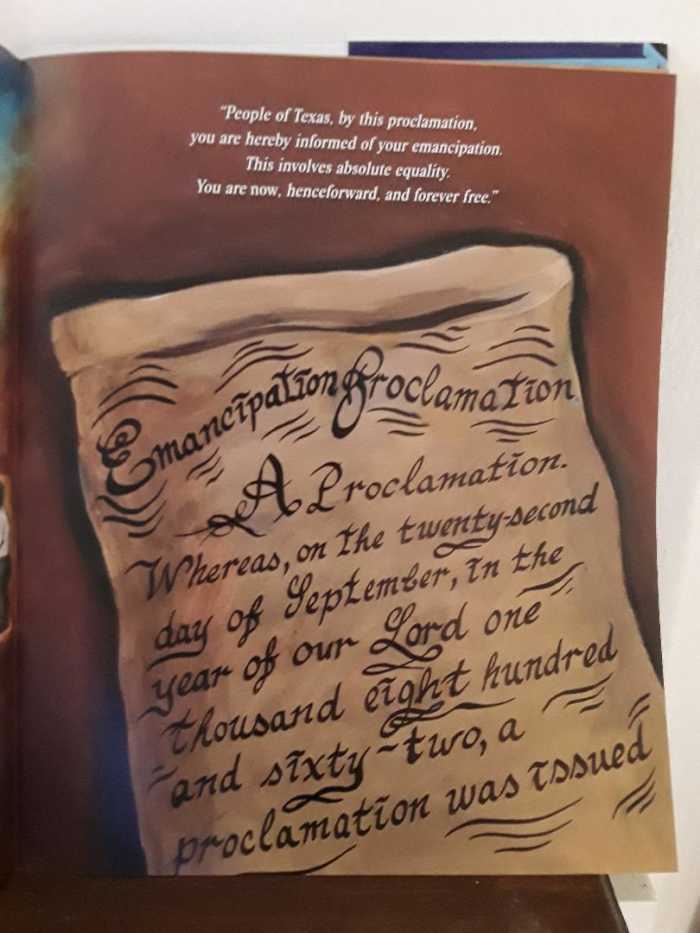 “People of Texas, by this proclamation,
you are hereby informed of your emancipation.
This involves absolute equality.
You are now, henceforward, and forever free.”
Emancipation Proclamation
A Proclamation.
Whereas, on the twenty-second
day of September, in the
year of our Lord one
thousand eight hundred
and sixty-two, a
proclamation was issued